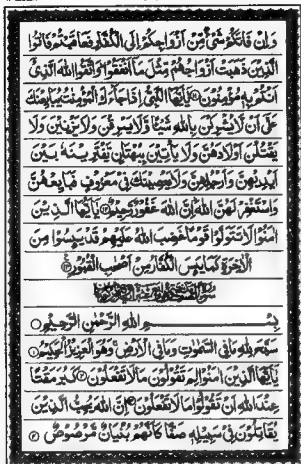 وَإِنْ فَاتَكُمْ شَيْءٌ مِنْ أَزْوَاجِكُمْ إِلَى الْكُفَّارِ فَعَاقَبْتُمْ فَآتُوا
الَّذِينَ ذَهَبَتْ أَزْوَاجُهُمْ مِثْلَ مَا أَنْفَقُوا وَاتَّقُوا اللَّهَ الَّذِي
أَنْتُمْ بِهِ مُؤْمِنُونَ ۝ يَا أَيُّهَا النَّبِيُّ إِذَا جَاءَكَ الْمُؤْمِنَاتُ يُبَايِعْنَكَ
عَلَى أَنْ لَا يُشْرِكْنَ بِاللَّهِ شَيْئًا وَلَا يَسْرِقْنَ وَلَا يَزْنِينَ وَلَا
يَقْتُلْنَ أَوْلَادَهُنَّ وَلَا يَأْتِينَ بِبُهْتَانٍ يَفْتَرِينَهُ بَيْنَ
أَيْدِيهِنَّ وَأَرْجُلِهِنَّ وَلَا يَعْصِينَكَ فِي مَعْرُوفٍ فَبَايِعْهُنَّ
وَاسْتَغْفِرْ لَهُنَّ اللَّهَ إِنَّ اللَّهَ غَفُورٌ رَحِيمٌ ۝ يَا أَيُّهَا الَّذِينَ
آمَنُوا لَا تَتَوَلَّوْا قَوْمًا غَضِبَ اللَّهُ عَلَيْهِمْ قَدْ يَئِسُوا مِنَ
الْآخِرَةِ كَمَا يَئِسَ الْكُفَّارُ مِنْ أَصْحَابِ الْقُبُورِ ۝
بِسْمِ اللَّهِ الرَّحْمَنِ الرَّحِيمِ ۝
سَبَّحَ لِلَّهِ مَا فِي السَّمَوَاتِ وَمَا فِي الْأَرْضِ وَهُوَ الْعَزِيزُ الْحَكِيمُ ۝
يَا أَيُّهَا الَّذِينَ آمَنُوا لِمَ تَقُولُونَ مَا لَا تَفْعَلُونَ ۝ كَبُرَ مَقْتًا
عِنْدَ اللَّهِ أَنْ تَقُولُوا مَا لَا تَفْعَلُونَ ۝ إِنَّ اللَّهَ يُحِبُّ الَّذِينَ
يُقَاتِلُونَ فِي سَبِيلِهِ صَفًّا كَأَنَّهُمْ بُنْيَانٌ مَرْصُوصٌ ۝